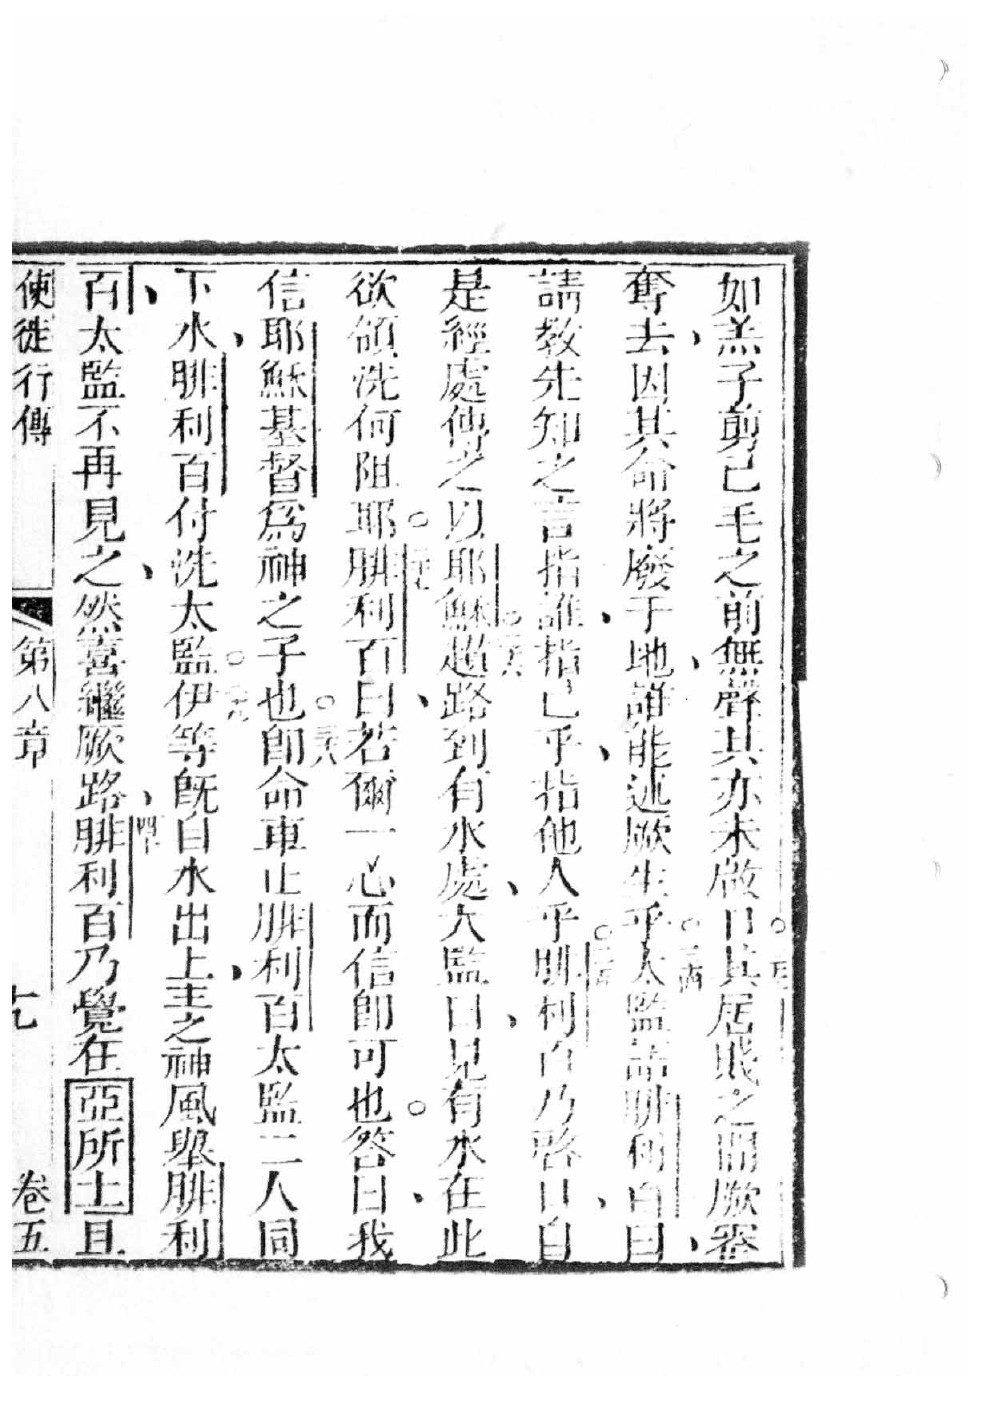 如羔子剪己毛之前無聲其亦未啟口其居賎之間厥審
奪去、因其命將廢于地、誰能述厥生乎。太監請腓利百曰、
請教先知之言指誰、指己乎、指他人乎。腓利百乃啓口、自
是經處傳之以耶穌。趨路到有水處、太監曰、見有水在此
欲領洗何阻耶。腓利百曰、若爾一心而信卽可也。答曰、我
信耶穌基督爲神之子也。三八卽命車止腓利百太監二人同
下水、腓利百付洗太監。伊等旣自水出上、主之神風舉腓利
百、太監不再見之、然喜繼厥路、四十腓利百乃覺在亞所土且
使徒行傳 第八章 七 卷五